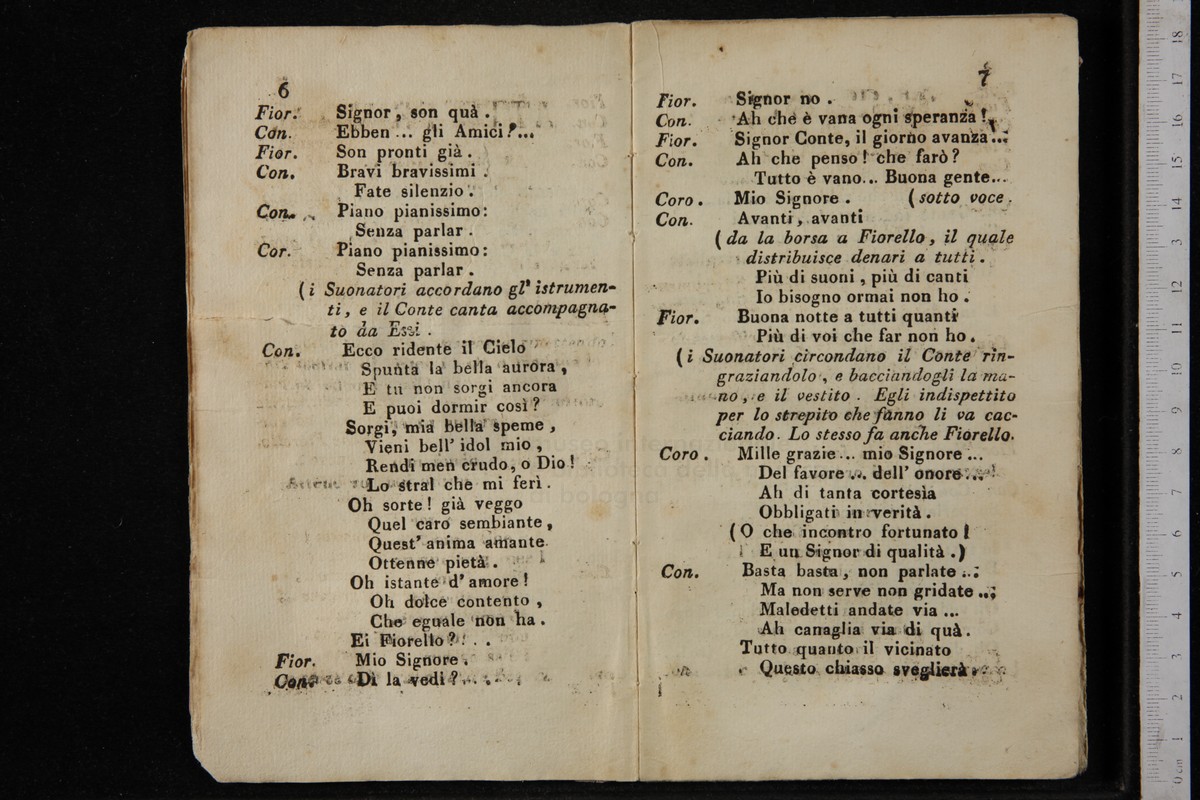 6
Fior. Signor, son quà.
Con. Ebben ... gli Amici?...
Fior. Son pronti già.
Con. Bravi bravissimi.
Fate silenzio.
Con. Piano pianissimo:
Senza parlar.
Cor. Piano pianissimo:
Senza parlar.
(i Suonatori accordano gl' istrumen-
ti, e il Conte canta accompagna-
to da Essi.
Con. Ecco ridente il Cielo
Spunta la bella aurora,
E tu non sorgi ancora
E puoi dormir così?
Sorgi, mia bella speme,
Vieni bell' idol mio,
Rendi men crudo, o Dio!
Lo stral che mi ferì.
Oh sorte! già veggo
Quel caro sembiante,
Quest' anima amante
Ottenne pietà.
Oh istante d' amore!
Oh dolce contento,
Che eguale non ha.
Ei Fiorello? . . .
Fior. Mio Signore.
Con. Di la vedi? . . .
7
Fior. Signor no.
Con. Ah che è vana ogni speranza!
Fior. Signor Conte, il giorno avanza...
Con. Ah che penso! che farò?
Tutto è vano... Buona gente...
Coro. Mio Signore. (sotto voce.
Con. Avanti, avanti
(da la borsa a Fiorello, il quale
distribuisce denari a tutti.
Più di suoni, più di canti
Io bisogno ormai non ho.
Fior. Buona notte a tutti quanti
Più di voi che far non ho.
(i Suonatori circondano il Conte rin-
graziandolo, e bacciandogli la ma-
no, e il vestito. Egli indispettito
per lo strepito che fanno li va cac-
ciando. Lo stesso fa anche Fiorello.
Coro. Mille grazie... mio Signore...
Del favore ... dell' onore...
Ah di tanta cortesìa
Obbligati in verità.
(O che incontro fortunato!
E un Signor di qualità.)
Con. Basta basta, non parlate...
Ma non serve non gridate...
Maledetti andate via ...
Ah canaglia via di quà.
Tutto quanto il vicinato
Questo chiasso sveglierà.